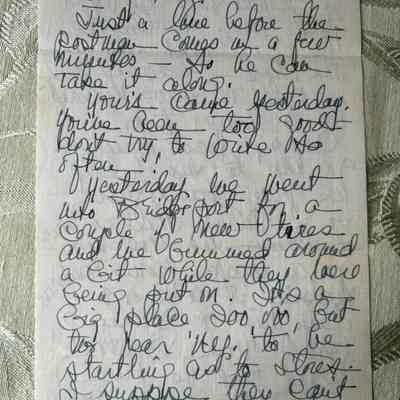 Just a line before the
postman comes in a few
minutes — so he can
take it along.
Yours came yesterday.
You've been too good
don't try to write so
often.
Yesterday we went
into Bridgeport for a
couple of new tires
and we bummed around
a bit while they were
being put on. It's a
big place 200,000, but
too near N.Y. to be
startling as to stores.
I suppose they can't